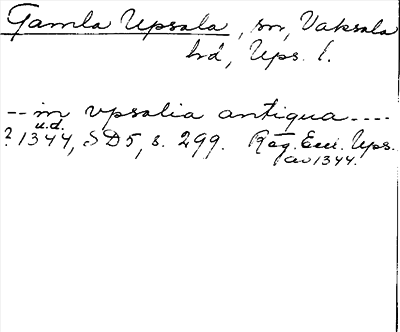 Gamla Upsala, sn, Vaksala
hd, Ups. l.
-- in vpsalia antiqua ----
u.d.
? 1344, SD5, s. 299. Reg. Eccl. Ups.
av 1344.